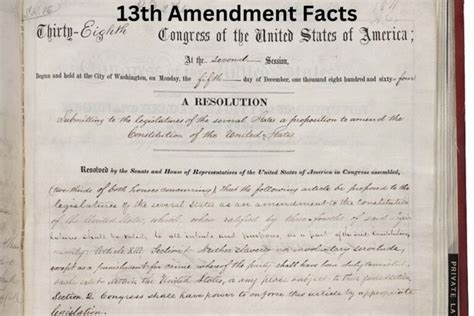 13th Amendment Facts
Thirty-Eighth Congress of the United States of America;
At the second Session,
Begun and held at the City of Washington, on Monday, the fifth day of December, one thousand eight hundred and sixty-four
A RESOLUTION
Submitting to the legislatures of the several States a proposition to amend the
Constitution of the United States
Resolved by the Senate and House of Representatives of the United States of America in Congress assembled,
(two thirds of both houses concurring) That the following article be proposed to the
legislatures of the several States as an amendment to the Constitution
of the United States, which, when ratified by three-fourths of said legis
latures shall be valid, to all intents and purposes, as a part of the said Constitution,
namely: Article XIII. Section 1. Neither slavery nor involuntary servitude,
except as a punishment for crime whereof the party shall have been duly convicted,
shall exist within the United States, or any place subject to their jurisdiction.
Section 2. Congress shall have power to enforce this article by appropriate
legislation.
PRIVATE LAW